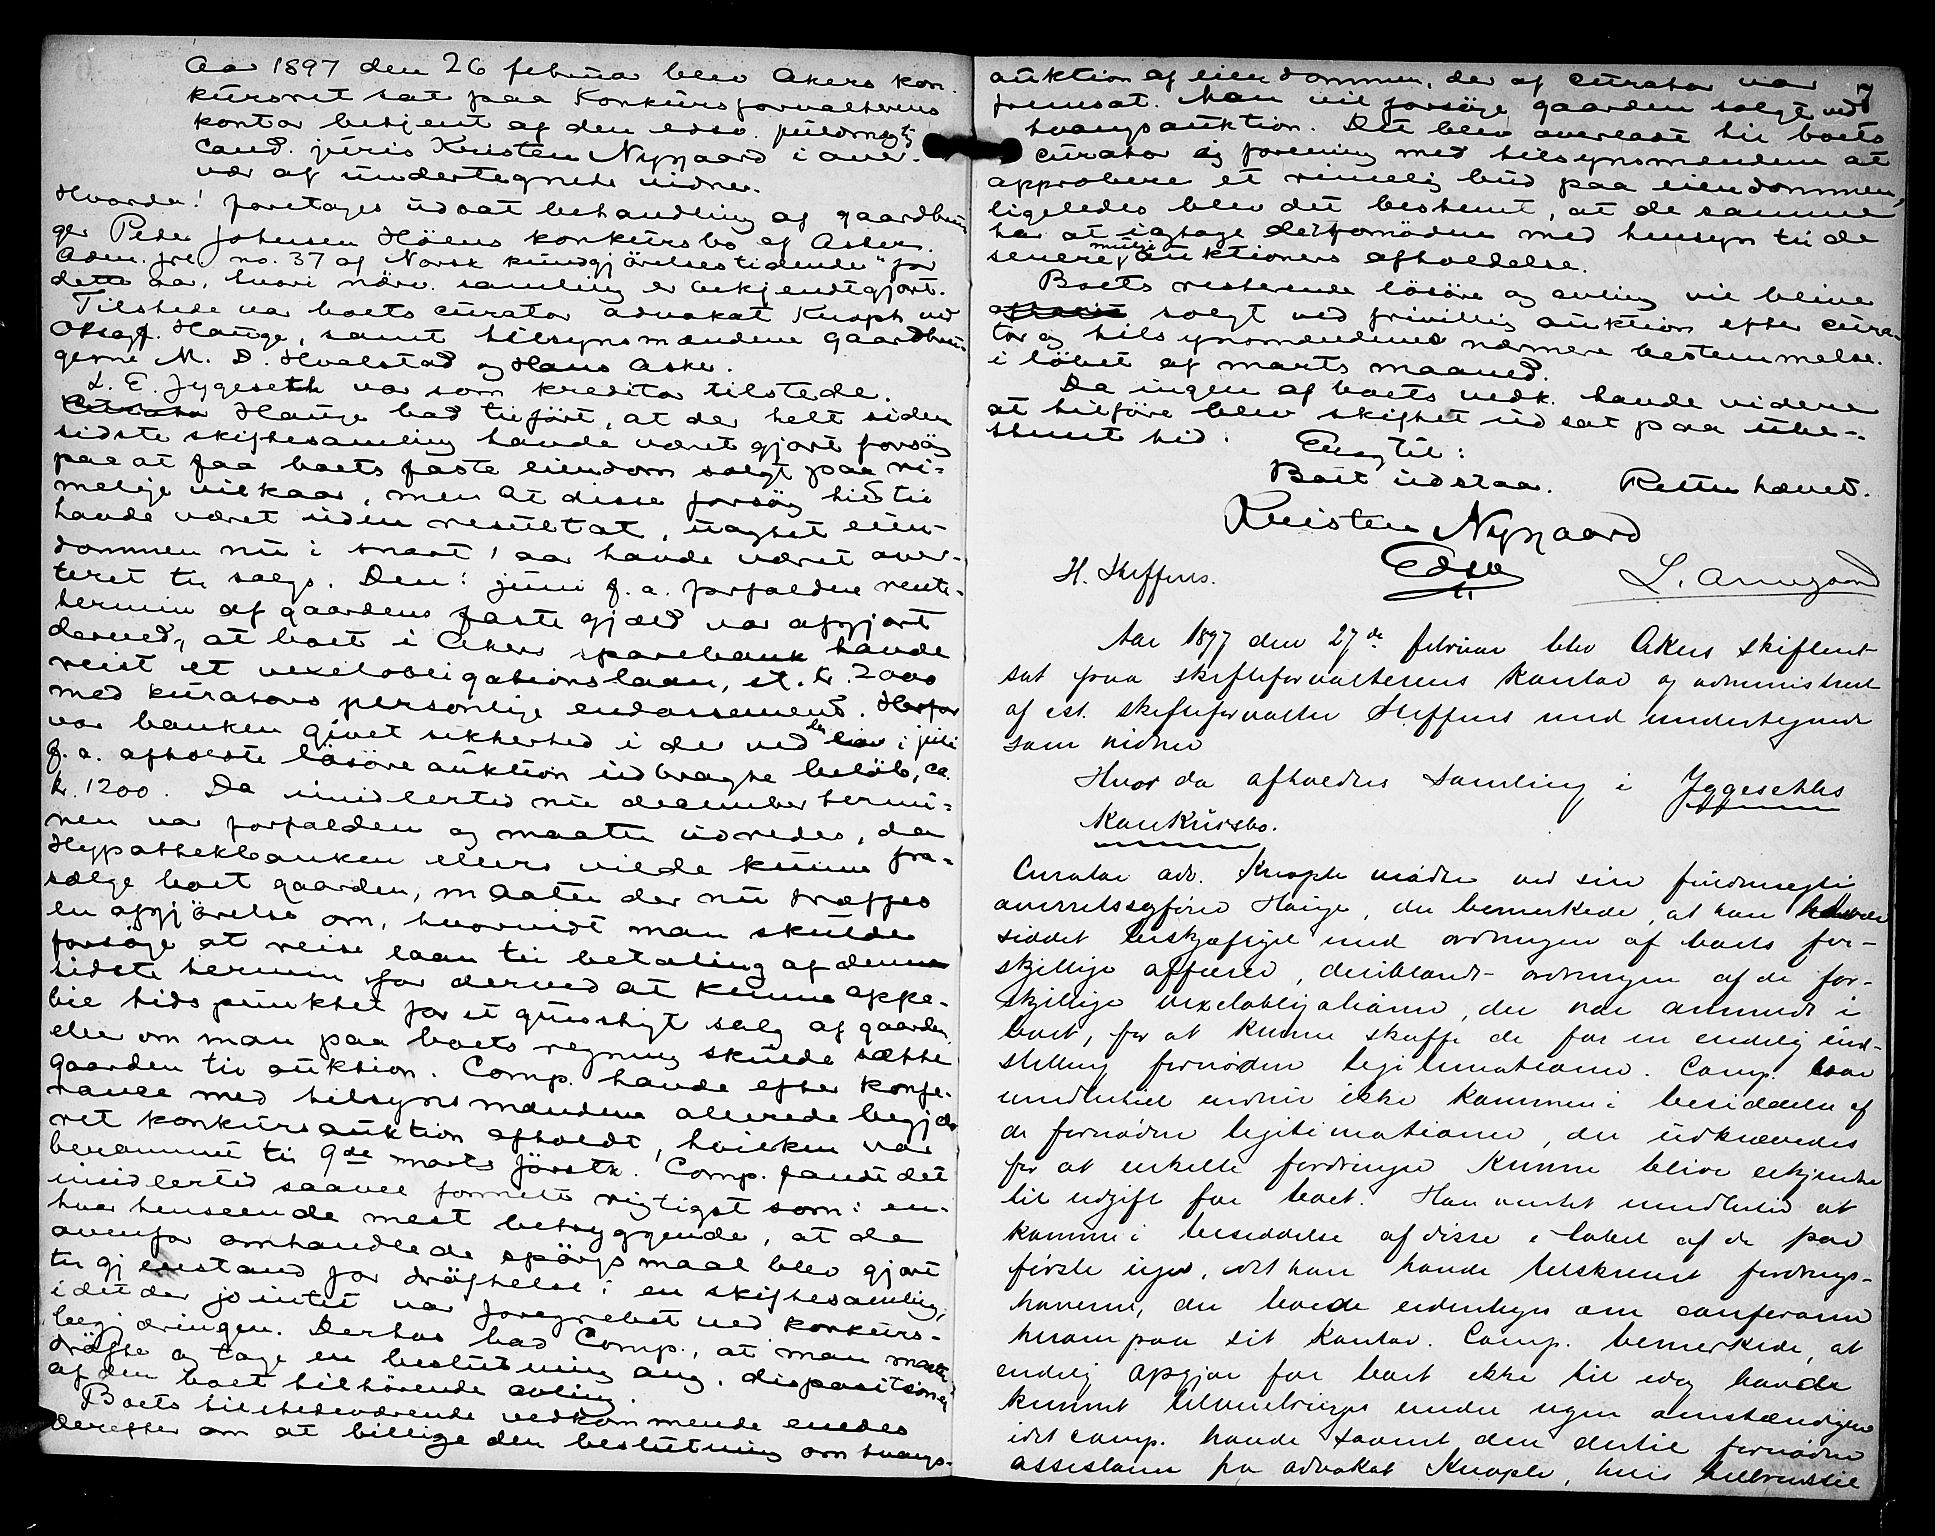 Aar 1897 den 26 februar blev Akers kon-
kursret sat paa Konkursforvalterens
kontor betjent af den edsv. fuldmægtig
cand. juris Kristen Nygaard i over-
vær af undertegnede vidner.
Hvorda! foretages udsat behandling af gaardbru-
ger Peder Johnsen Höens konkursbo af Asker.
Adm. frl no. 37 af Norsk kundgjörelsestidende" for
dette aar, hvori nærv. samling er bekjendtgjort.
Tilstede var boets curator advokat Knoph ved
Orsagf. Hauge, samt tilsynsmændene gaardbru-
gerne M. D. Hvalstad og Hans Asker.
L. E. Jygeseth var som kreditor tilstede.
Curator Hauge bad tilfört, at der helt siden
sidste skiftesamling havde været gjort forsög
paa at faa boets faste eiendom solgt paa ri-
melige vilkaar, men at disse forsög hidtil
havde været uden resultat, uagtet eien-
dommen nu i snart 1 aar havde været aver-
teret til salgs. Den i juni f. a. forfaldne rente-
termin af gaardens faste gjæld var afgjort
derved, at boet i Akers sparebank havde
reist et vexelobligationslaan, st. kr. 2000
med kurators personlige endossement. Herfor
var banken givet sikkerhed i der ved den i juli
f. a. afholdte lösöreauktion udbragte belöb, ca.
kr. 1200. Da imidlertid nu december termi-
nen var forfalden og maatte udredes, da
Hypothekbanken ellers vilde kunne fra-
sælge boet gaarden, maatte der nu træffes
en afgjörelse om, hvorvidt man skulde
forsöge at reise laan til betaling af denne
sidste termin for derved at kunne oppe-
bie tidspunktet for et gunstigt salg af gaarden
eller om man paa boets regning skulde sætte
gaarden til auktion. Comp. havde efter konfe-
rance med tilsynsmændene allerede begjæ-
ret konkursauktion afholdt, hvilken var
berammet til 9de marts förstk. Comp. fandt det
imidlertid saavel formelt rigtigst som i en-
hver henseende mest betryggende, at de
ovenfor omhandlede spörgsmaal blev gjort
til gjenstand for dröftelse i en skiftesamling,
idet der jo intet var foregrebet ved konkurs-
begjæringen. Derhos bad Comp., at man maatte
dröfte og tage en beslutning ang. dispositionen
af den boet tilhörende avling.
Boets tilstedeværende vedkommende enedes
derefter om at billige den beslutning om tvangs-
7
auktion af eiendommen, der af curator var
fremsat. Man vil forsöge gaarden solgt ved
tvangsauktion. Det blev overladt til boets
curator og forening med tilsynsmændene at
approbere et rimelig bud paa eiendommen,
ligeledes blev det bestemt, at de samme
har at iagtage det fornödne med hensyn til de
senere mulige auktioners afholdelse.
Boets resterende lösöre og avling vil blive
solgt ved frivillig auktion efter cura-
tor og tilsynsmændenes nærmere bestemmelse.
i löbet af marts maaned.
Da ingen af boets vedk. havde videre
at tilföre blev skiftet udsat paa ube-
stemt tid.
Eragtet:
Boet udstaar. Retten hævet.
Kristen Nygaard
Edsv
H. Steffens. L. Arnegaard
Aar 1897 den 27de februar blev Akers skifteret
sat paa skifteforvalterens kontor og administreret
af cst. skifteforvalter Steffens med undertegnede
som vidner
Hvor da afholdtes Samling i Yggeseths
Konkursbo.
Curator adv. Knoph mödte ved sin fuldmægtig
overretssagförer Hauge, der bemerkede, at han havde
siddet beskjæftiget med ordningen af boets for-
skjellige affærer, deriblandt ordningen af de for-
skjellige vexelobligationer, der var anmeldt i
boet, for at kunne skaffe de for en endelig ind-
stilling fornödne legitimationer. Comp. var
imidlertid endnu ikke kommen i besiddelse af
de fornödne legitimationer, der udkrævedes
for at enkelte fordringer kunne blive erkjendte
til udgift for boet. Han ventet imidlertid at
komme i besiddelse af disse i löbet af de par
förste uger, idet han havde tilskrevet fordrings-
haverne, der havde at conferere
hveom paa sit Kontor. Comp. bemerkede, at
endelig opgjör for boet ikke til idag havde
kunnet tilveiebringes under ingen omstændigheder
idet comp. havde savnet den dertil fornödne
assistance fra advokat Knoph, hvis